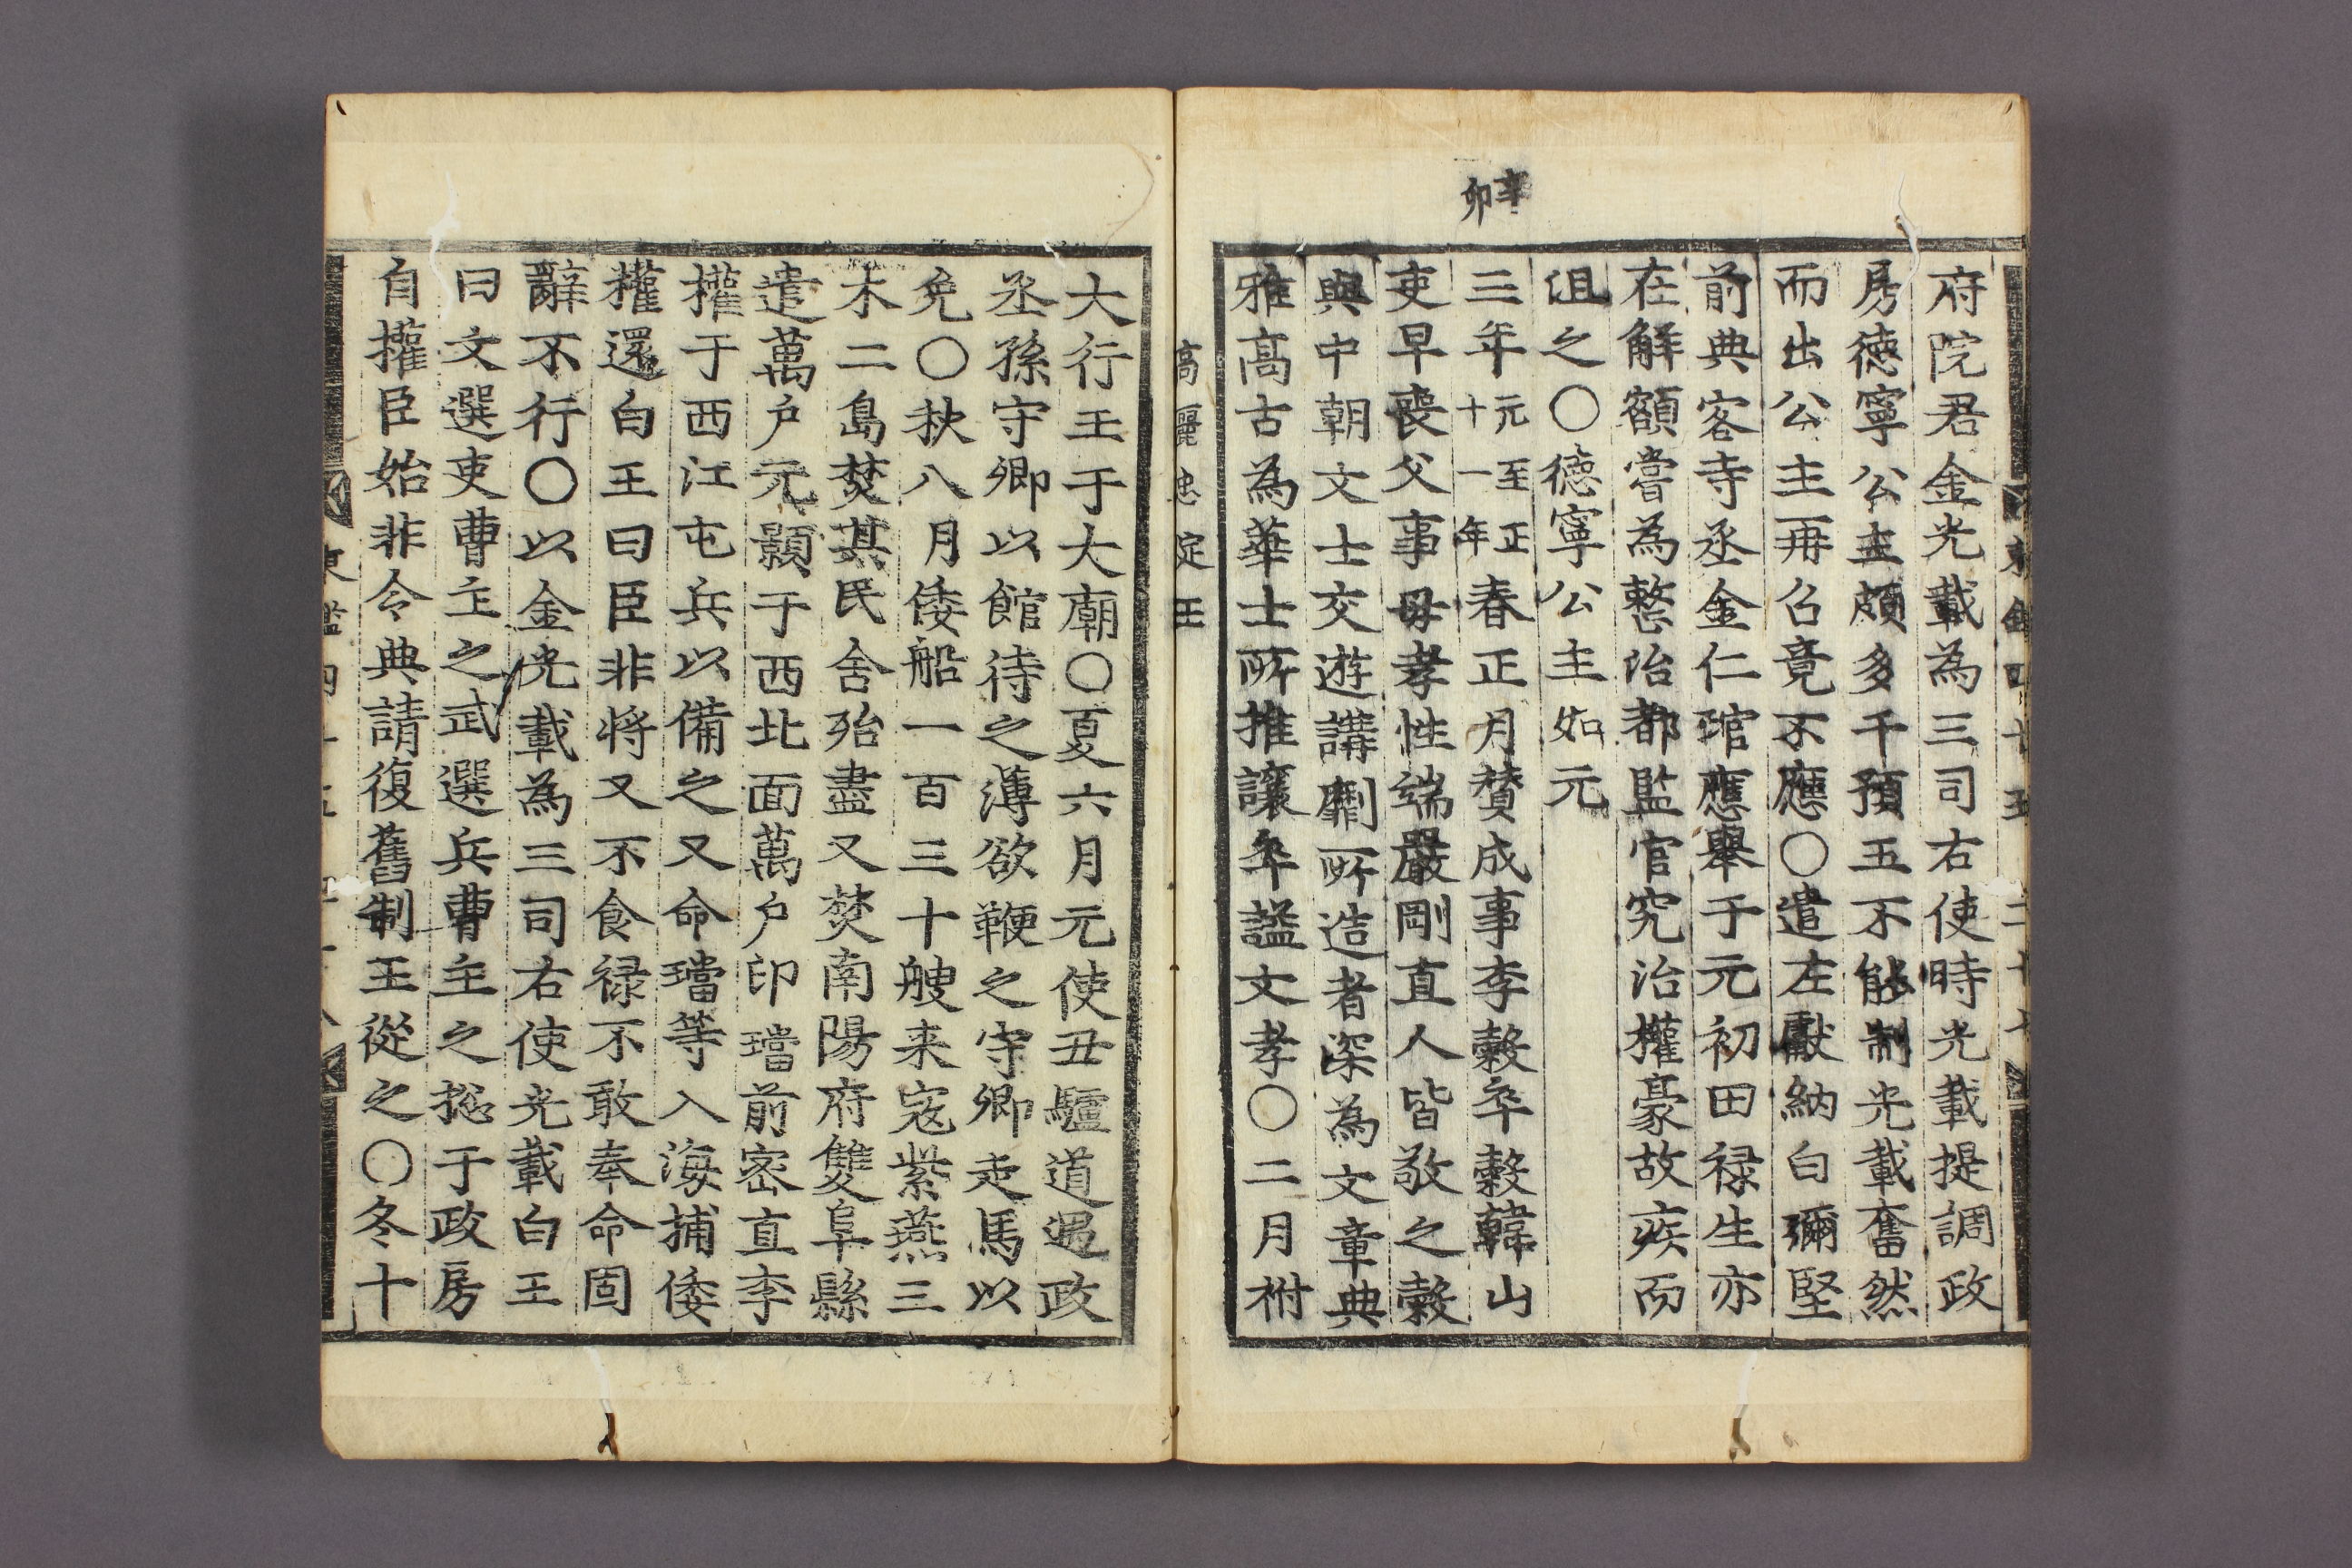 辛卯
府院君金光載為三司右使時光載提調政
房徳寧公主頗多干預五不能制光載奮然
而出公主再召竟不應〇遣左獻納白彌堅
前典客寺丞金仁琯應舉于元初田禄生亦
在解額嘗為整治都監官究治權豪故疾而
沮之〇徳寧公主如元
三年元至正十一年春正月賛成事李縠卒縠韓山
吏早喪父事母孝性端嚴剛直人皆敬之縠
與中朝文士交遊講劘所造者深為文章典
雅高古為華士所推讓卒謚文孝〇二月祔
高麗忠定王
大行王于大廟〇夏六月元使丑驢道遇政
丞孫守卿以館待之薄欲鞭之守卿走馬以
免〇秋八月倭船一百三十艘来寇紫燕三
木二島焚其民舍殆盡又焚南陽府雙阜縣
遣萬户元顥于西北面萬户印璫前密直李
權于西江屯兵以備之又命璫等入海捕倭
權還白王曰臣非将又不食禄不敢奉命固
辭不行〇以金光載為三司右使光載白王
曰文選吏曹主之武選兵曹主之捴于政房
自權臣始非令典請復舊制王從之〇冬十